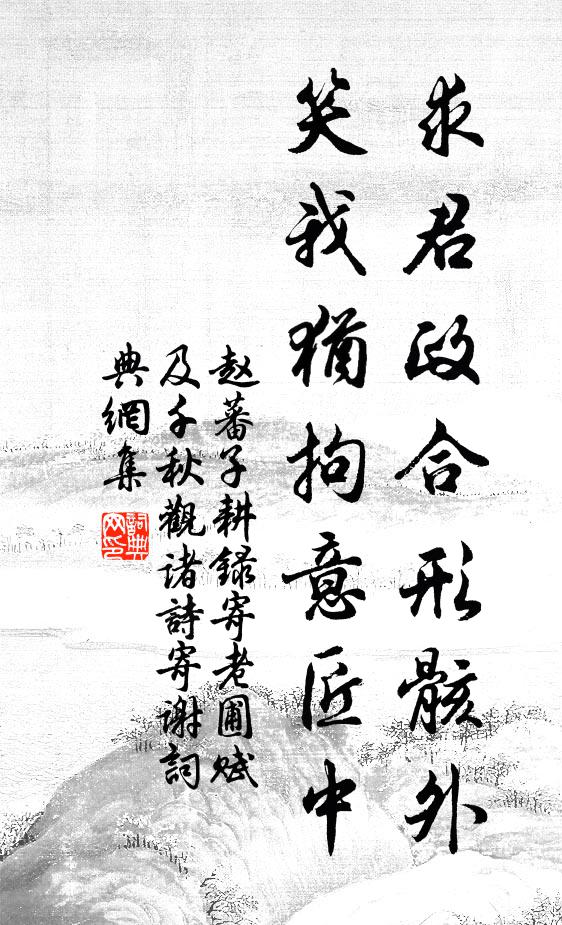 求君政合形骸外
笑我猶拘意匠中
赵蕃子耕録寄老圃賦
及千秋觀诸詩寄谢詞
典網集
詞典
网印